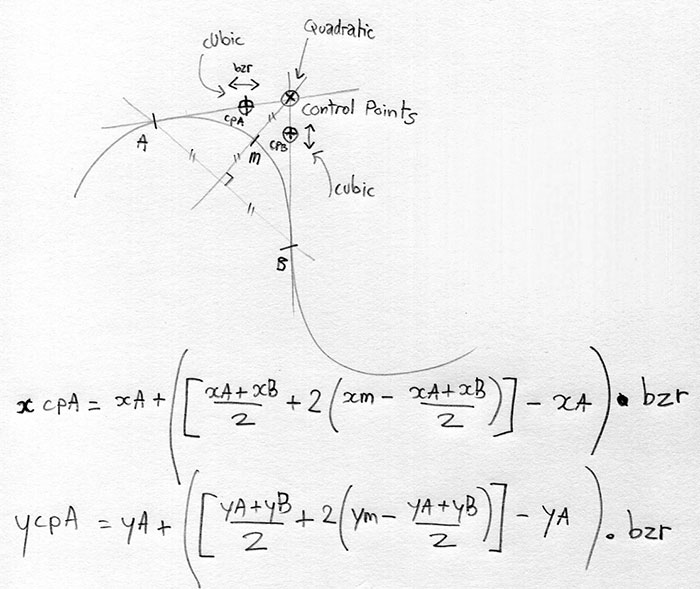 Quadratic
cubic
bzr
cpA
Control Points
A
m
cpB
cubic
B
x cpA = xA + ([xA+xB/2 + 2(xm - xA+xB/2)] - xA) • bzr
ycpA = yA + ([yA+yB/2 + 2(ym - yA+yB/2)] - yA) . bzr